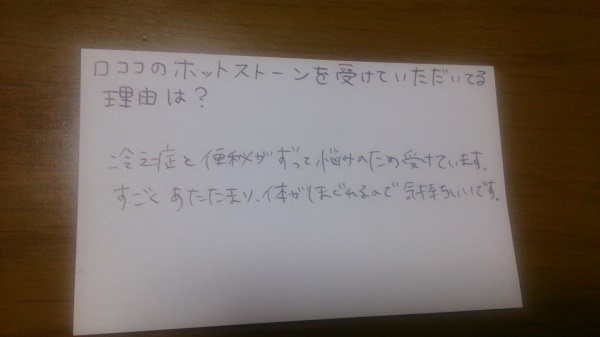 ロココのホットストーンを受けていただいてる
理由は?
冷え症と便秘がずっと悩みのため受けています。
すごくあたたまり、体がほぐれるので気持ちいいです。